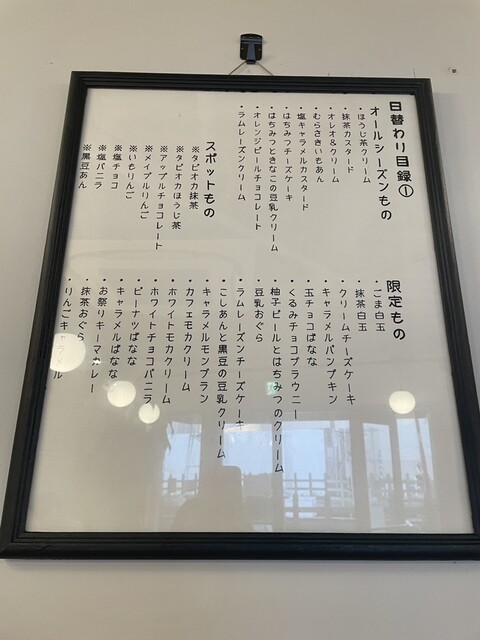 日替わり目録①
オールシーズンもの
・ほうじ茶クリーム
・抹茶カスタード
・オレオ&クリーム
・むらさきいもあん
・塩キャラメルカスタード
・はちみつチーズケーキ
・はちみつときなこの豆乳クリーム
・オレンジピールチョコレート
・ラムレーズンクリーム
スポットもの
※タピオカ抹茶
※タピオカほうじ茶
※アップルチョコレート
※メイプルりんご
※いもりんご
※塩チョコ
※塩バニラ
※黒豆あん
限定もの
・ごま白玉
・抹茶白玉
・クリームチーズケーキ
・キャラメルパンプキン
・玉チョコばなな
・くるみチョコブラウニー
・柚子ピールとはちみつのクリーム
・豆乳おぐら
・ラムレーズンチーズケーキ
・こしあんと黒豆の豆乳クリーム
・キャラメルモンブラン
・カフェモカクリーム
・ホワイトモカクリーム
・ホワイトチョコバニラ
・ピーナツばなな
・キャラメルばなな
・お祭りキーマカレー
・抹茶おぐら
・りんごキャラメル